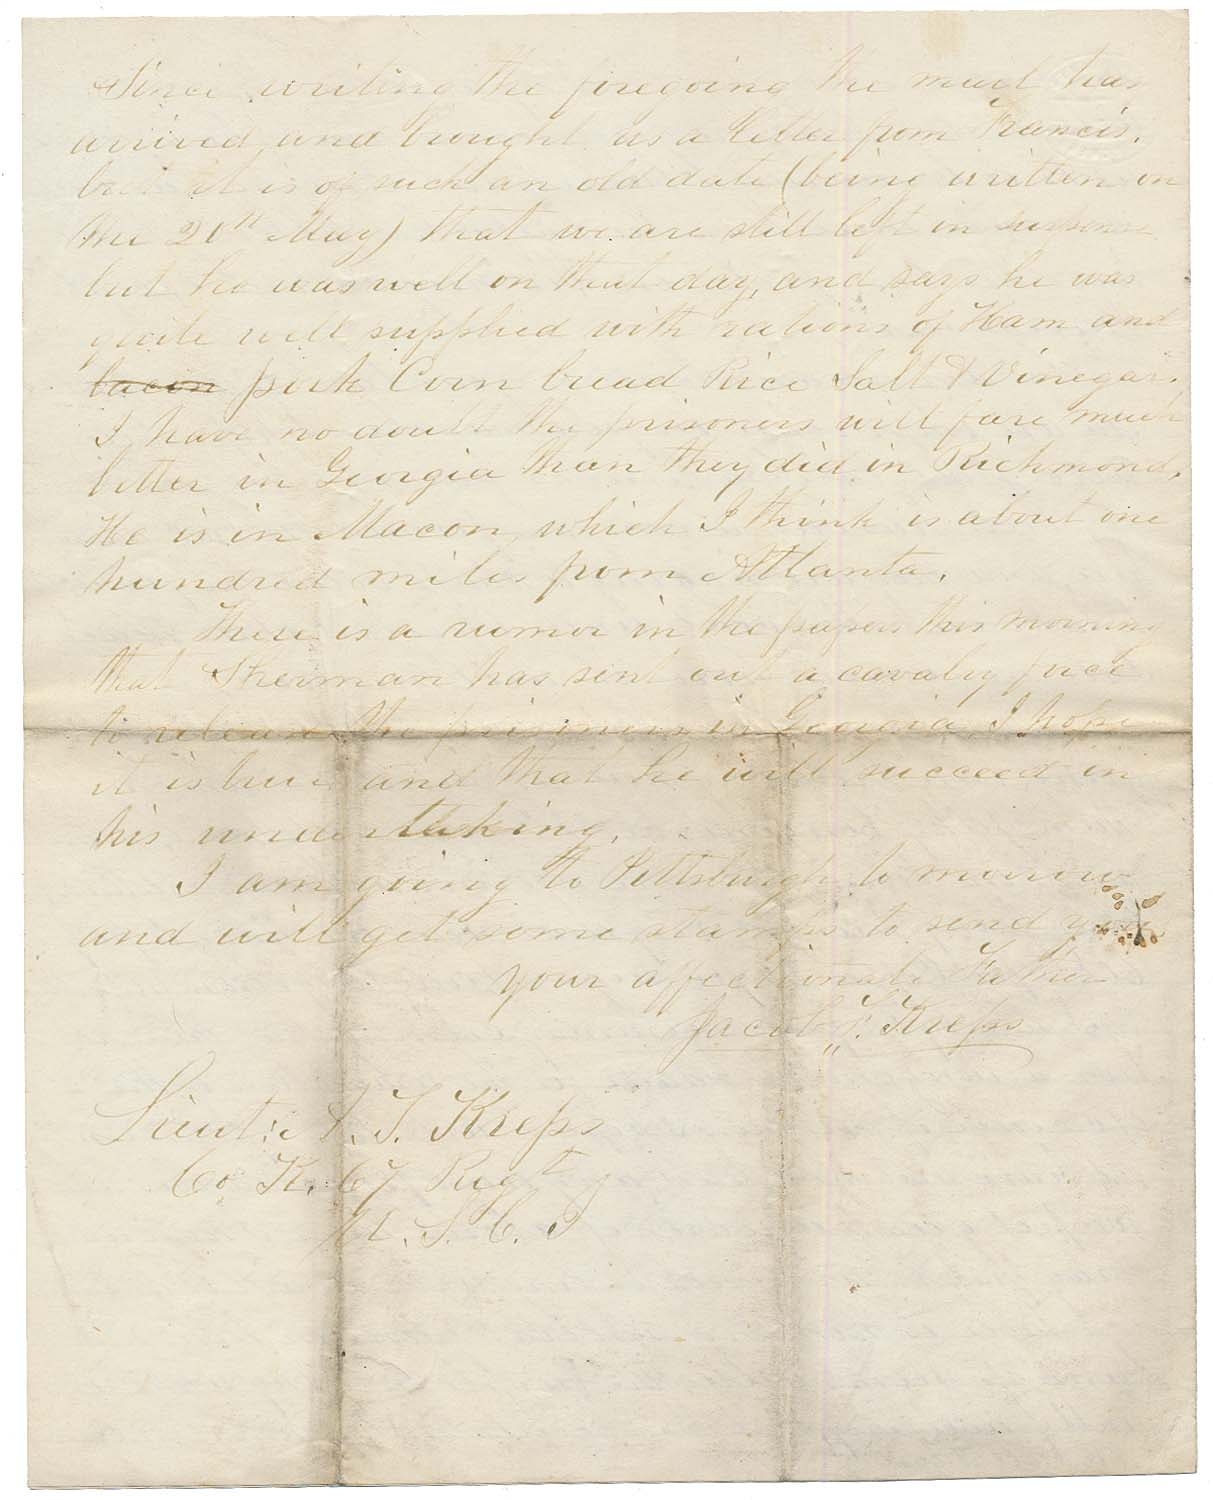 Since writing the foregoing the mail has
arrived and brought us a letter from Francis,
but it is of such an old date (being written on
the 20th May) that we are still left in suspense
but he was well on that day, and says he was
quite well supplied with rations of Ham and
bacon pork Corn bread Rice Salt & Vinegar.
I have no doubt the prisoners will fare much
better in Georgia than they did in Richmond,
He is in Macon, which I think is about one
hundred miles from Atlanta.
There is a rumor in the papers this morning
that Sherman has sent out a cavalry force
to release the prisoners in Georgia, I hope
it is true and that he will succeed in
his undertaking.
I am going to Pittsburgh to morrow
and will get some stamps to send you
your affectionate Father
Jacob F. Kreps
Lieut: A. T. Kreps
Co K. 67 Regt
U. S. C. I